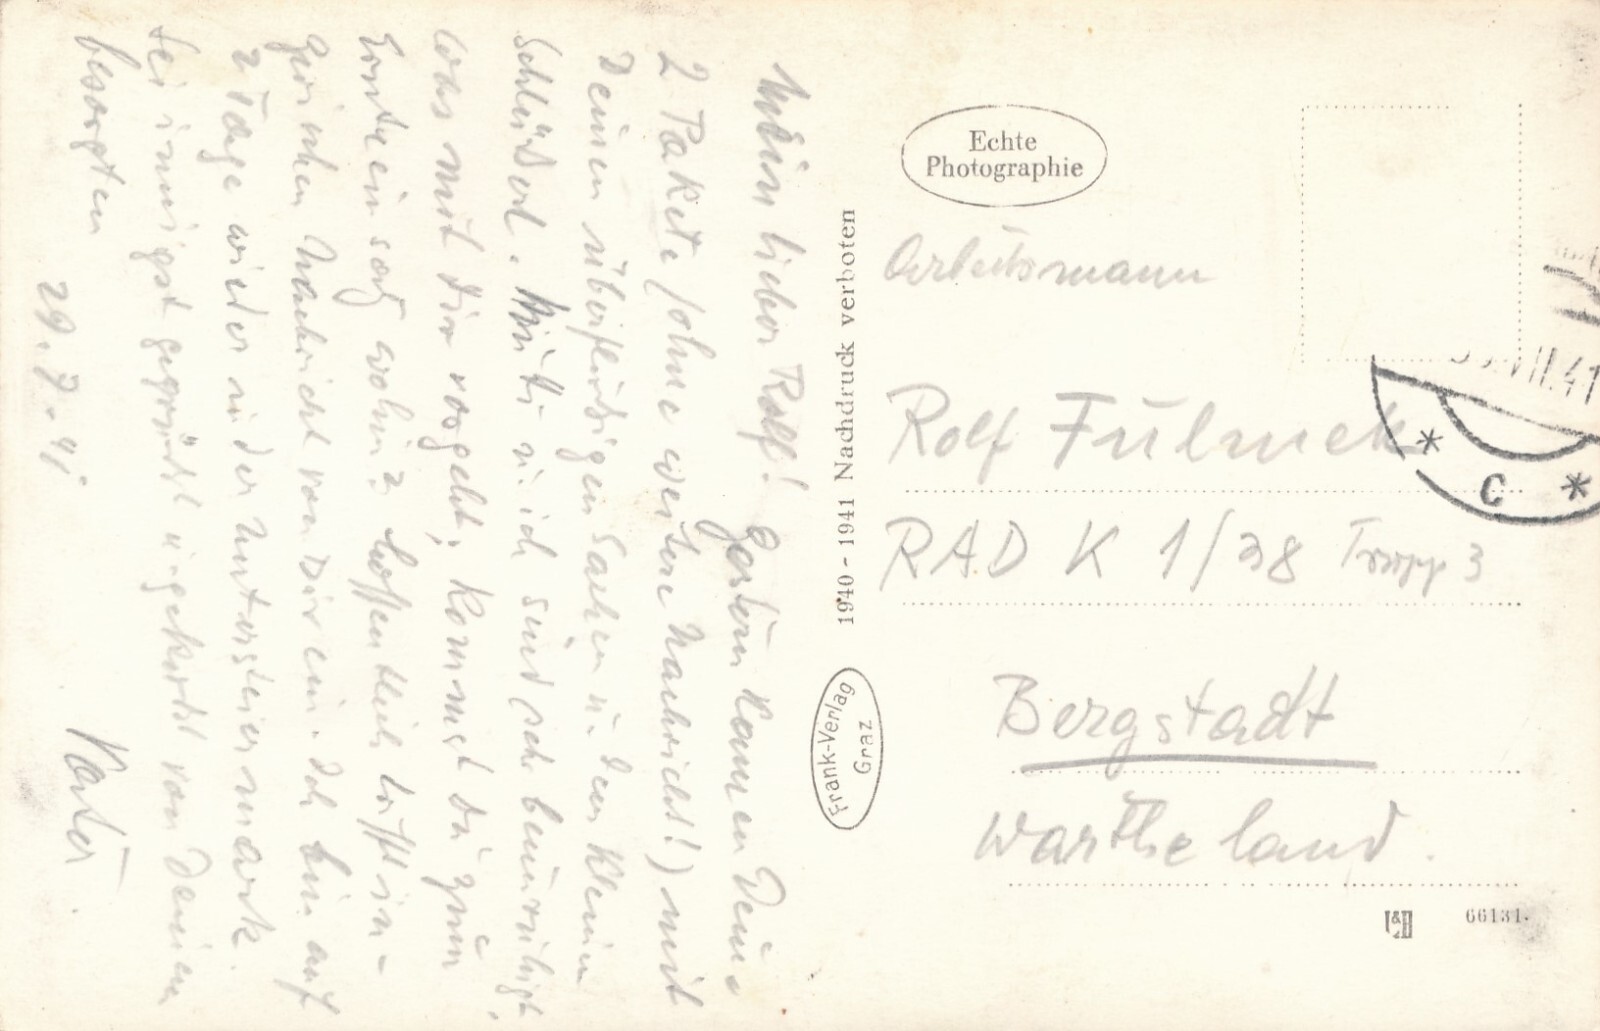 Mein lieber Rolf! Gestern kamen Deine
2 Pakete (ohne weitere Nachricht!) mit
Deinen überflüssigen Sachen u. den kleinen
Schlüssel. Mutti u. ich sind sehr beunruhigt,
was mit Dir vorgeht. Kommst Du zum
Ernteeinsatz wohin? Hoffentlich trifft in-
zwischen Nachricht von Dir ein. Ich bin auf
2 Tage wieder in der Untersteiermark.
Sei innigst gegrüßt u. geküßt von Deinem
besorgten
29.7.41
Vater.
1940 - 1941 Nachdruck verboten
Frank-Verlag
Graz
Echte
Photographie
Arbeitsmann
Rolf Fulmek
RAD K 1/38 Trupp 3
Bergstadt
Wartheland.
VII.41
* C *
66131.